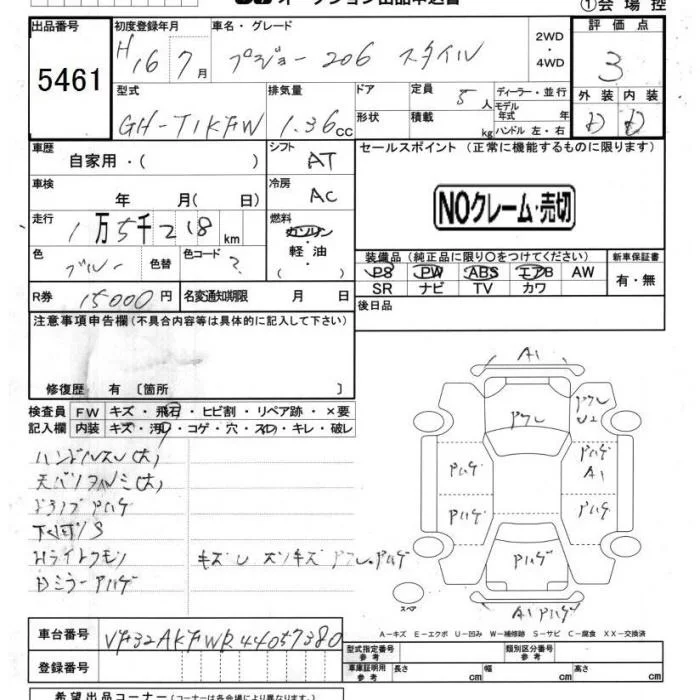 ①会場控
出品番号
5461
初度登録年月
H16 7月
車名・グレード
プジョー206 スタイル
2WD
・
4WD
評価点
3
外装 内装
D D
型式
GH-T1KFW
排気量
1.36cc
ドア
形状
定員
5人
積載
kg
ディーラー・並行
モデル年式 年
ハンドル 左・右
車歴
自家用・( )
シフト
AT
車検
年 月( 日)
冷房
AC
走行
1万5千218km
燃料
ガソリン
軽・油
( ・ )
色
ブルー
色替
色コード
?
R券
15000円
名変通知期限 月 日
セールスポイント (正常に機能するものに限ります)
NOクレーム・売切
装備品 (純正品に限り○をつけてください)
PS PW ABS エアB AW
SR ナビ TV カワ
新車保証書
有・無
後日品
注意事項申告欄(不具合内容等は具体的に記入して下さい)
修復歴 有 [箇所 ]
検査員記入欄
FW キズ・飛石・ヒビ割・リペア跡・×要
内装 キズ・汚レ・コゲ・穴・スレ・キレ・破レ
ハンドルスレ(大)
ドアノブ Pハゲ
下回りS
Hライトクモリ
Dミラー Pハゲ
キズ U
A1
Pハゲ
A1
Pハゲ
Pハゲ
Pハゲ
Pハゲ
A1 Pハゲ
スペア
A-キズ E-エクボ U-凹み W-補修跡 S-サビ C-腐食 XX-交換済
車台番号
VF32AKFWR44057380
登録番号
型式指定番号 参考
類別区分番号 参考
車庫証明用 参考
長さ cm
幅 cm
高さ cm
希望出品コーナー(コーナーは各会場により異なります)